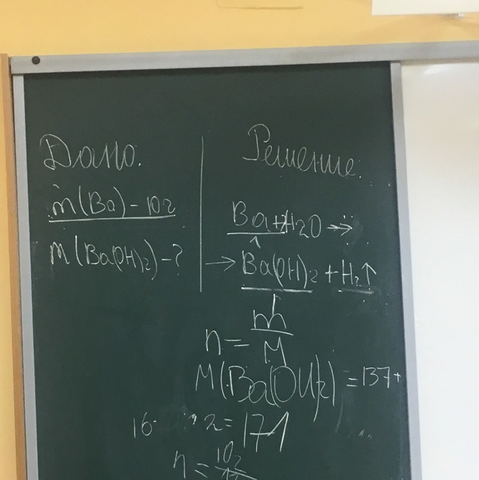 Дано:
m(Ba) - 10г
m(Ba(OH)₂) - ?
Решение:
Ba + H₂O →
→ Ba(OH)₂ + H₂↑
n = m/M
M(Ba(OH)₂) = 137 +
16 · 2 = 171
n = 10г